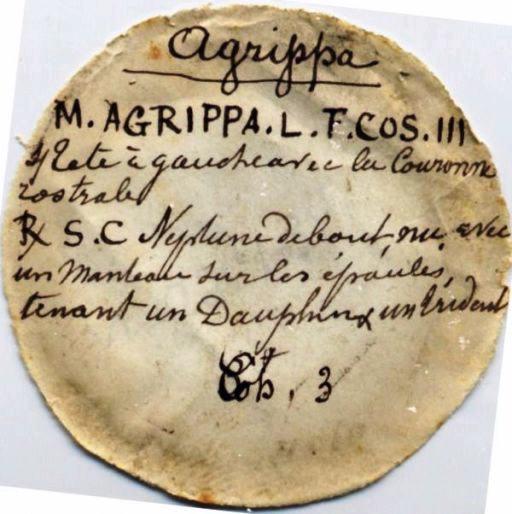 Agrippa
M. AGRIPPA. L. F. COS. III
Tete à gauche avec la Couronne
rostrale
R S. C Neptune debout nu, avec
un Manteau sur les épaules,
tenant un Dauphin & un Trident
Coh. 3